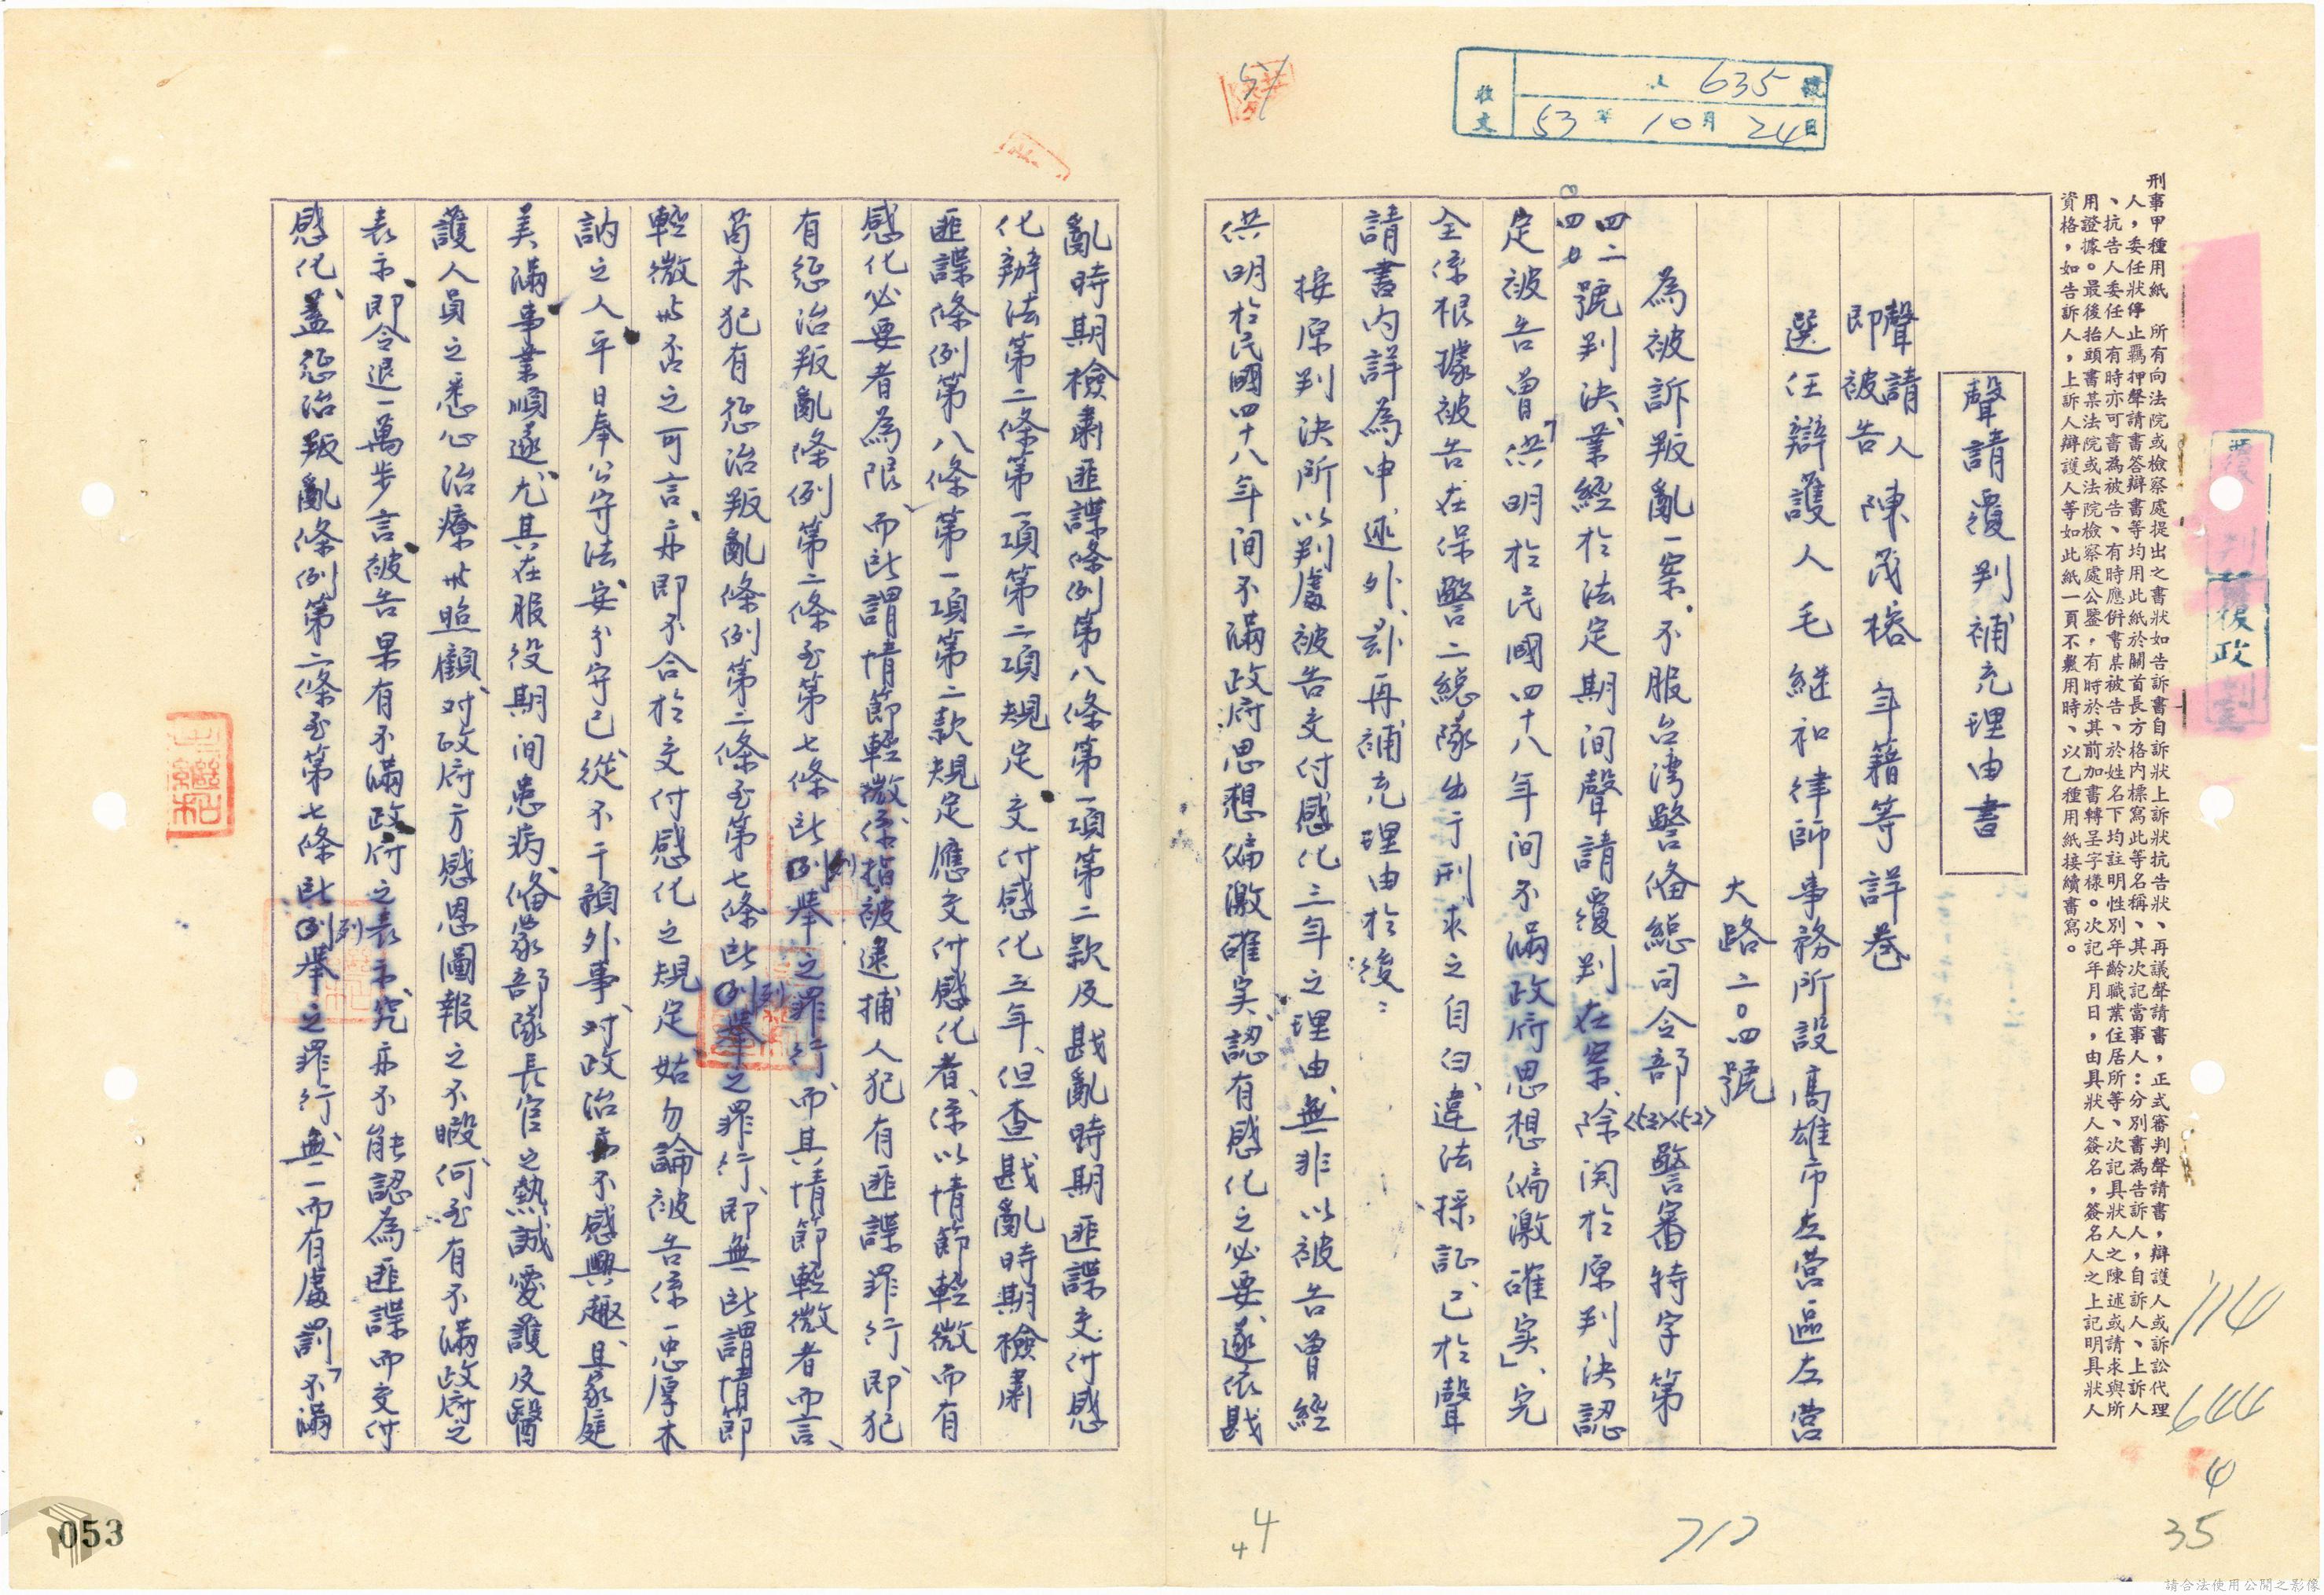 收文
635號
53年10月24日
刑事甲種用紙　所有向法院或檢察處提出之書狀如告訴書自訴狀上訴狀抗告狀、再議聲請書，正式審判聲請書，辯護人或訴訟代理
人，委任狀停止羈押聲請書答辯書等均用此紙於關首長方格內標寫此等名稱、其次記當事人：分別書為告訴人，自訴人、上訴人
、抗告人委任人有時亦可書為被告、有時應併書某被告、於姓名下均註明性別年齡職業住居所等、次記具狀人之陳述或請求與所
用證據。最後抬頭書某法院或法院檢察處公鑒，有時於其前加書轉呈字樣。次記年月日，由具狀人簽名，簽名人之上記明具狀人
資格，如告訴人，上訴人辯護人等如此紙一頁不敷用時、以乙種用紙接續書寫。
聲請覆判補充理由書
聲請人
即被告　陳茂榕　年籍等詳卷
選任辯護人毛継和律師事務所設高雄市左营區左营
大路二〇四號
為被訴叛亂一案．不服台灣警俻総司令部<53><53>警審特字第
四二
四七號判決、業經於法定期间聲請覆判在案、除関於原判決認
定被告曾「供明於民國四十八年间不滿政府思想偏激確实」、完
全係根據被告在保警二総隊出于刑求之自白、違法採証、已於聲
請書内詳為申述外、茲再補充理由於後：
按原判決所以判處被告交付感化三年之理由、無非以被告曾經
供明於民國四十八年间不滿政府思想偏激確实、認有感化之必要、遂依戡
亂時期檢肅匪諜條例第八條第一項第二款及戡亂時期匪諜交付感
化辦法第二條第一項第二項規定、交付感化三年、但查戡亂時期檢肅
匪諜條例第八條第一項第二款規定應交付感化者、係以情節輕微而有
感化必要者為限、而此謂情節輕微、係指被逮捕人犯有匪諜罪行、即犯
有惩治叛亂條例第二條至第七條所列舉之罪行、而其情節輕微者而言、
苟未犯有惩治叛亂條例第二條至第七條所列舉之罪行、即無此謂情節
輕微與否之可言、亦即不合於交付感化之規定、姑勿論被告係一忠厚木
訥之人、平日奉公守法、安分守己、從不干預外事、对政治亦不感興趣、且家庭
美滿、事業順遂、尤其在服役期间患病、俻蒙部隊長官之熱誠愛護及醫
護人員之悉心治療與照顧、对政府方感恩圖報之不暇、何至有不滿政府之
表示、即令退一萬步言、被告果有不滿政府之表示、究亦不能認為匪諜而交付
感化、蓋惩治叛亂條例第二條至第七條所列舉之罪行、無一而有處罰「不滿
114
644
4
35
717
44
053
請合法使用公開之影像